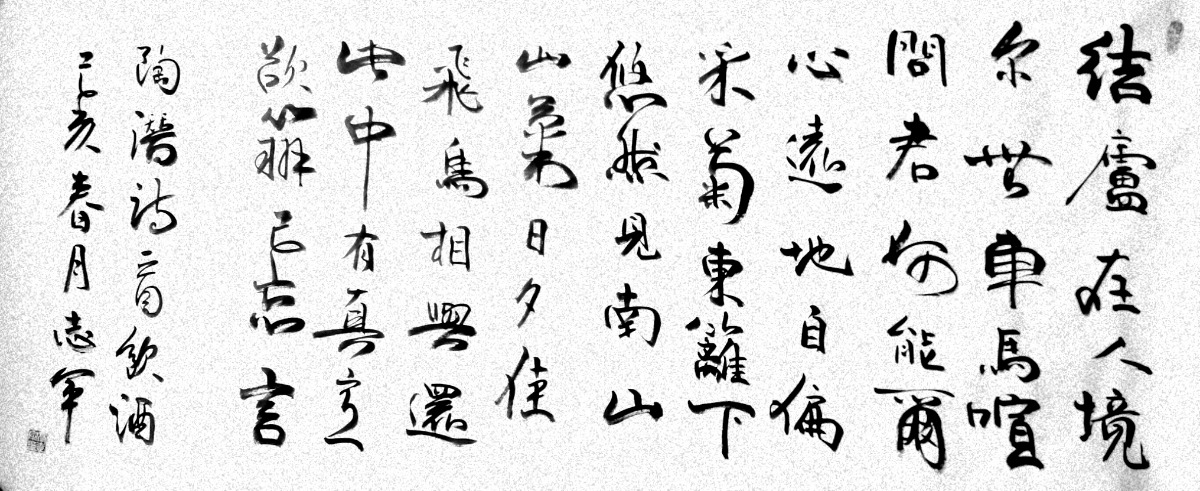 結廬在人境
尔無車馬喧
問君何能爾
心遠地自偏
采菊東籬下
悠然見南山
山氣日夕佳
飛鳥相與還
此中有真意
欲辨已忘言
陶潛詩一首飲酒
己亥春月志軍